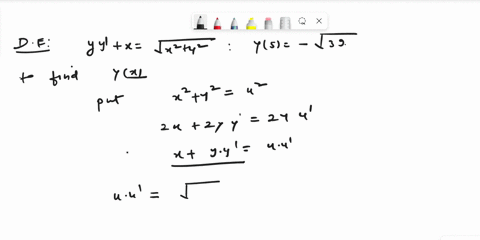 D.E: yy' + x = √x²+y² : y(5) = -√39
to find y(x)
put x² + y² = u²
2x + 2y y' = 2u u'
x + y.y' = u.u'
u.u' = √